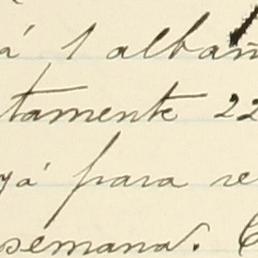 á 1 albañ
tamente 22
yá para re
semana. C